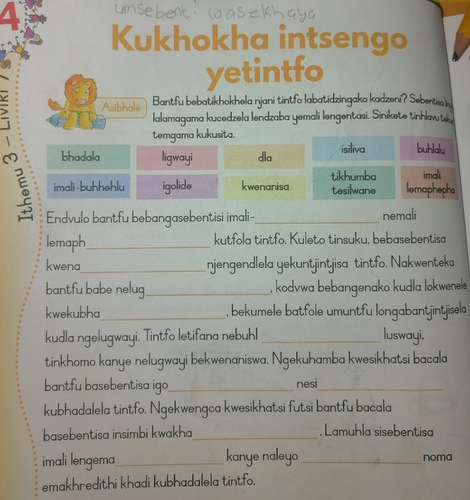 4
umsebenti wasekhaya
Ithemu 3 – LIVIKI 7
Kukhokha intsengo
yetintfo
Asibhale
Bantfu bebatikhokhela njani tintfo labatidzingako kadzeni? Sebentisa
lalamagama kucedzela lendzaba yemali lengentasi. Sinikete tinhlavu
temgama kukusita.
bhadala ligwayi dla isiliva buhlalu
imali-buhhehlu igolide kwenanisa tikhumba tesilwane imali lemaphepha
Endvulo bantfu bebangasebentisi imali-____ nemali
lemaph____ kutfola tintfo. Kuleto tinsuku, bebasebentisa
kwena____ njengendlela yekuntjintjisa tintfo. Nakwenteka
bantfu babe nelug____, kodvwa bebangenako kudla lokwenele
kwekubha____, bekumele batfole umuntfu longabantjintjisela
kudla ngelugwayi. Tintfo letifana nebuhl____ luswayi,
tinkhomo kanye nelugwayi bekwenaniswa. Ngekuhamba kwesikhatsi bacala
bantfu basebentisa igo____ nesi____
kubhadalela tintfo. Ngekwengca kwesikhatsi futsi bantfu bacala
basebentisa insimbi kwakha____. Lamuhla sisebentisa
imali lengema____ kanye naleyo____ noma
emakhredithi khadi kubhadalela tintfo.